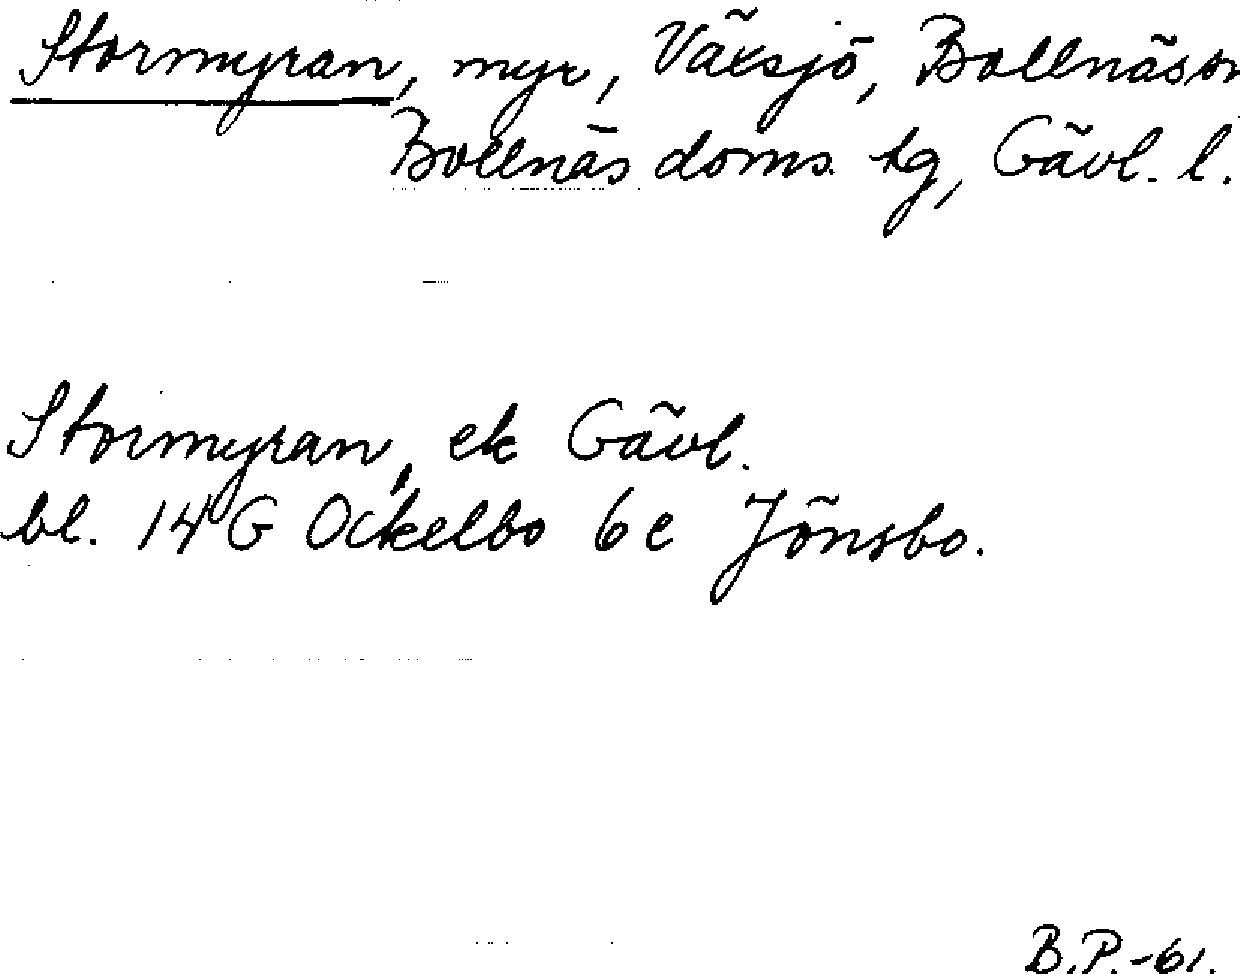 Stormyran, myr, Växsjö, Bollnäs sn
Bollnäs doms. tg, Gävl. l.
Stormyran, ek Gävl.
bl. 14 G Ockelbo 6 e Jönsbo.
B.P.-61.